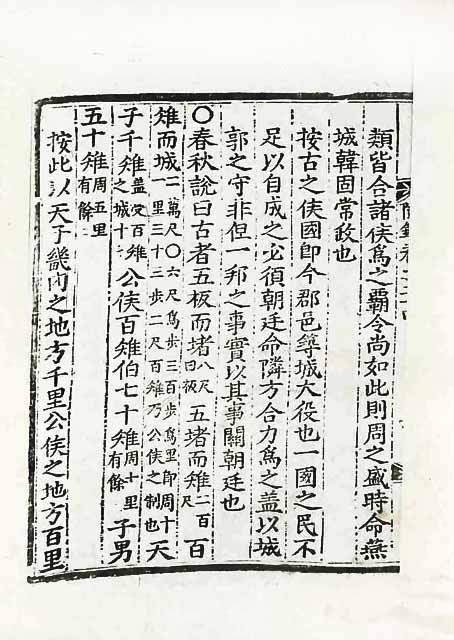 類皆合諸侯爲之覇令尚如此則周之盛時命燕
城韓固常政也
按古之侯國卽今郡邑築城大役也一國之民不
足以自成之必須朝廷命隣方合力爲之盖以城
郭之守非但一邦之事實以其事關朝廷也
〇春秋說曰古者五板而堵八尺曰板五堵而雉二百尺百
雉而城二萬尺〇六尺爲步三百步爲里卽周十一里三十三步二尺百雉乃公侯之制也天
子千雉盖受百雉之城十公侯百雉伯七十雉周十里有餘子男
五十雉周五里有餘
按此以天子畿內之地方千里公侯之地方百里